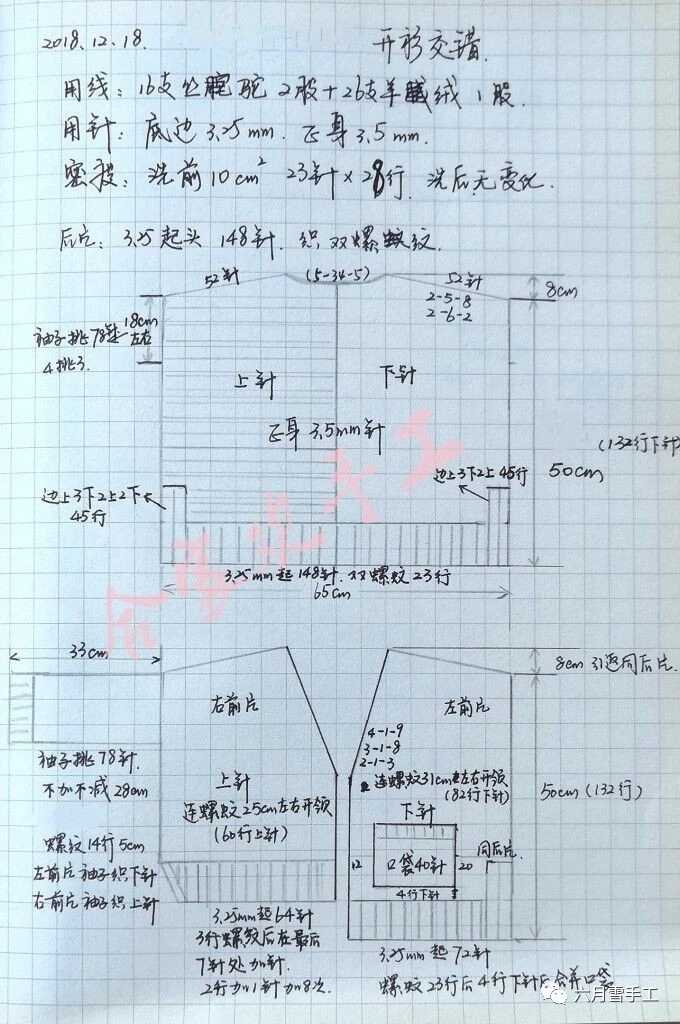 2018.12.18.
开衫交错.
用线：16支丝驼 2股+26支羊绒 1股.
用针：底边 3.25mm. 正身 3.5mm.
密度：洗前 10cm² 23针×28行. 洗后无变化.
后片：3.25 起头 148针. 织双螺纹.
52针 (5-34-5) 52针
2-5-8
2-6-2
8cm
18cm
左右
袖子挑78针
4挑3.
上针 下针
正身 3.5mm针
(132行下针)
50cm
边上3下2上2下
45行
边上3下2上 45行
3.25mm 起148针. 双螺纹 23行
65cm
33cm
8cm 引返同后片.
右前片 左前片
4-1-9
3-1-8
2-1-3
上针
连螺纹25cm左右开领
(60行上针)
连螺纹31cm左右开领
(82行下针)
下针
50cm (132行)
袖子挑78针.
不加不减 28cm
螺纹14行5cm
左前片袖子织下针
右前片袖子织上针
12 口袋40针 20
4行下针
同后片.
3.25mm起64针
3行螺纹后在最后
7针处加针.
2行加1针加8次.
3.25mm 起72针
螺纹23行后4行下针后合并口袋
六月雪手工